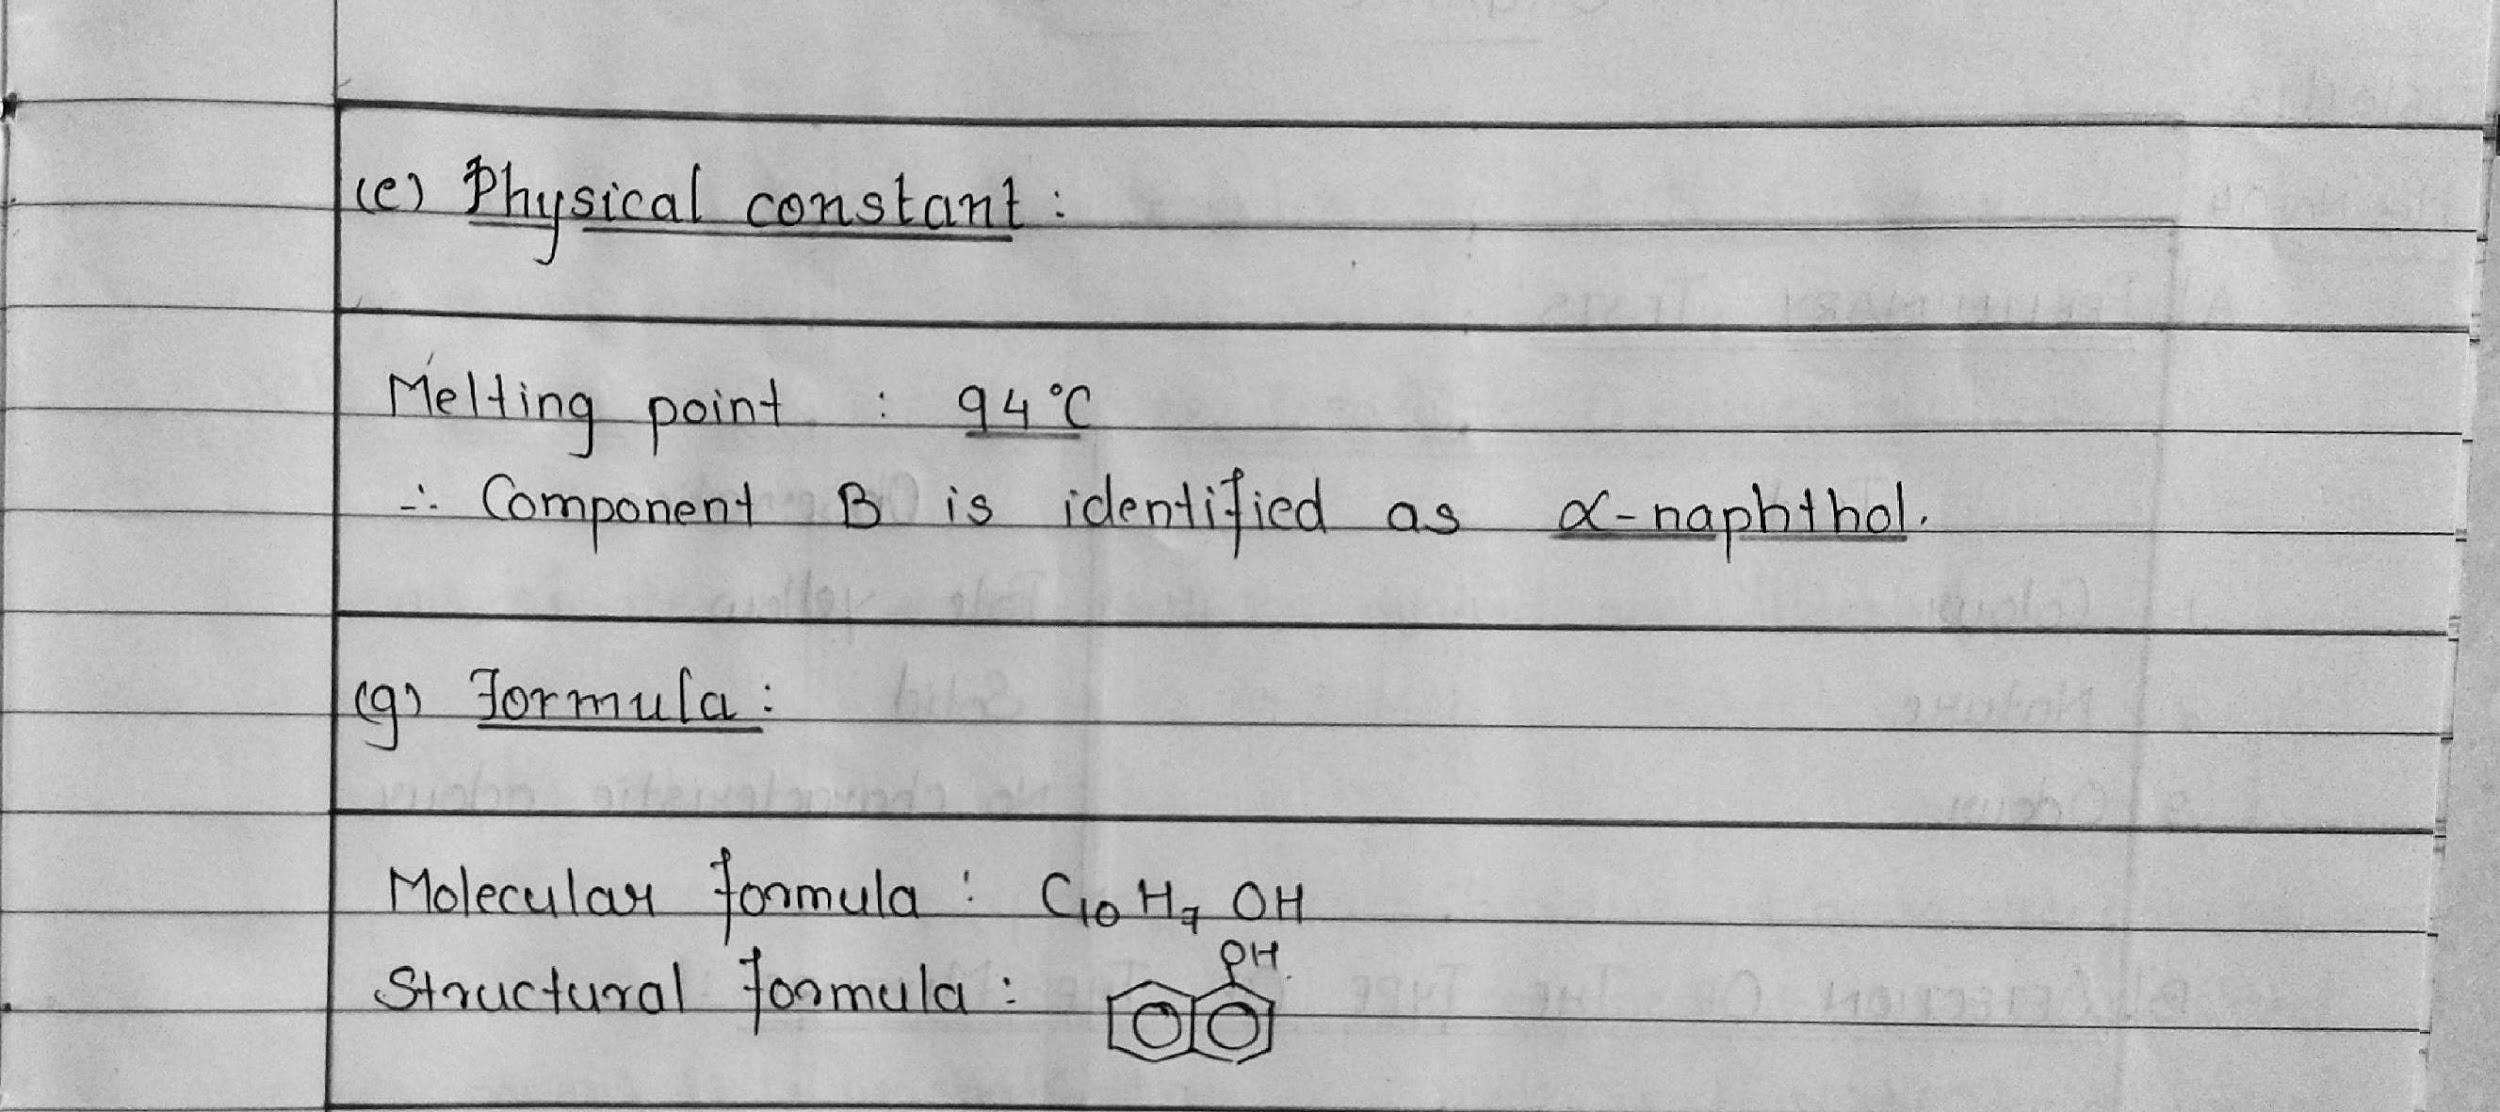 (e) Physical constant :
Melting point : 94°C
∴ Component B is identified as α-naphthol.
(g) Formula :
Molecular formula : C₁₀H₇OH
Structural formula :
OH